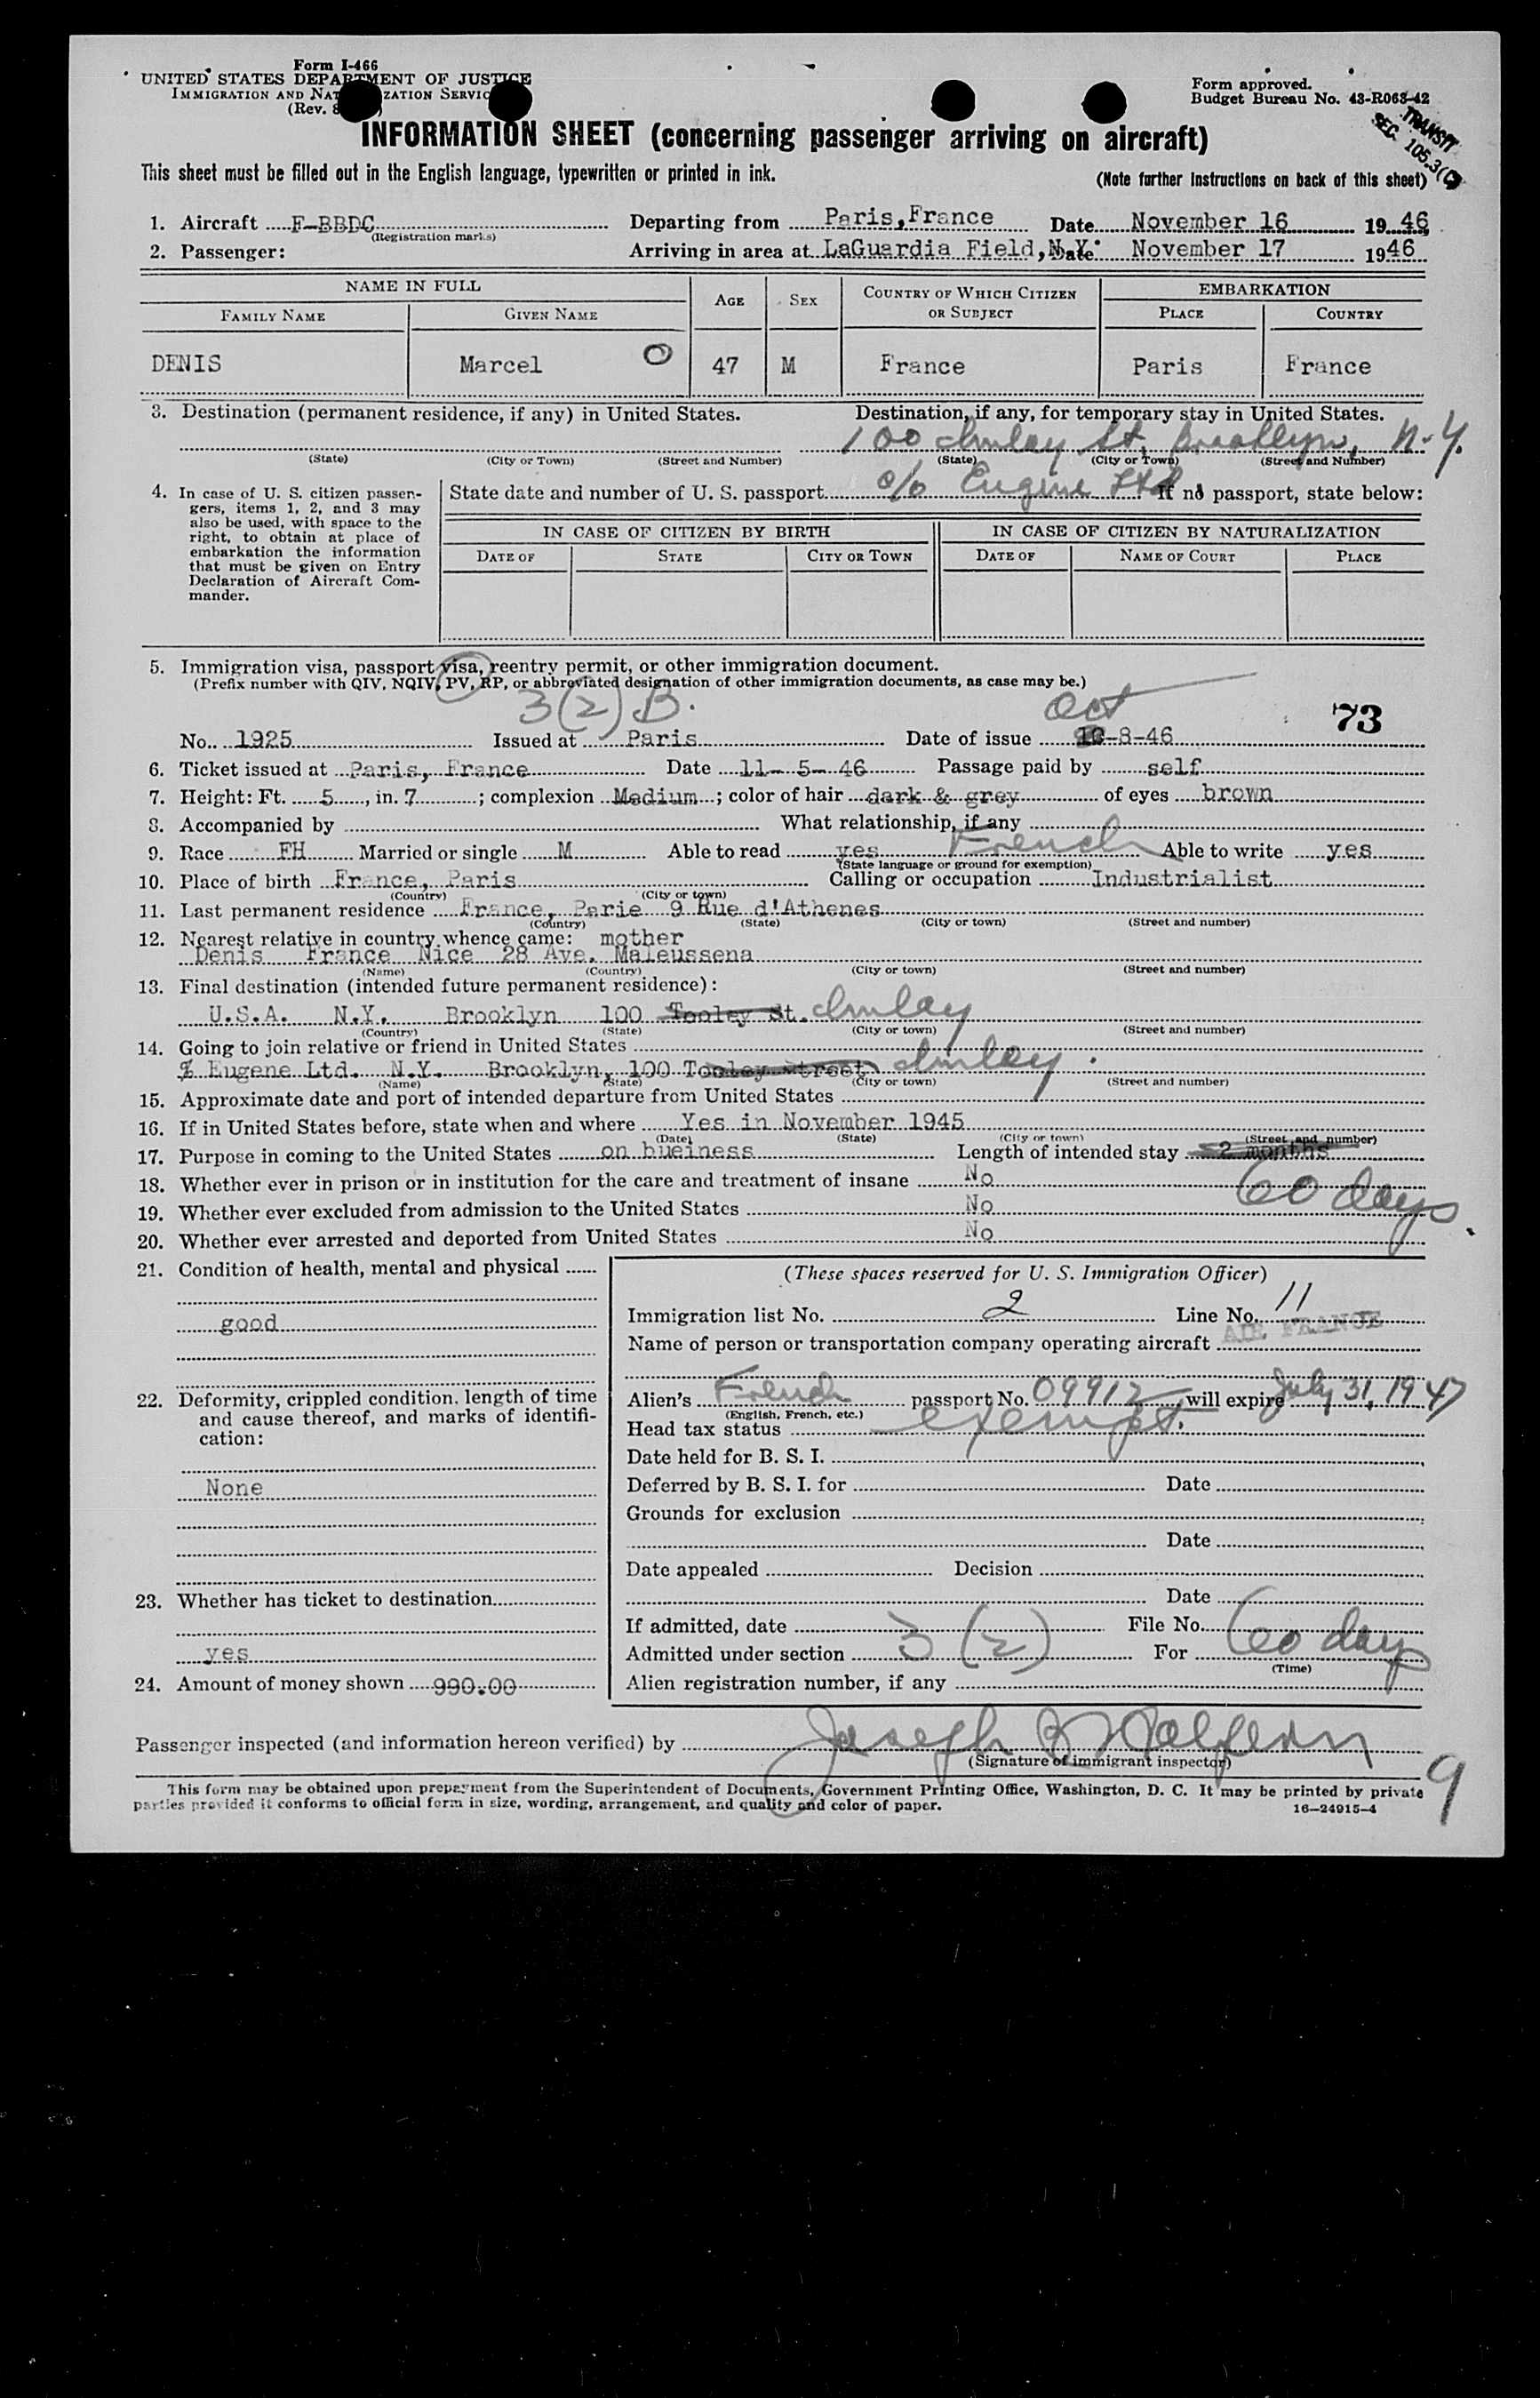 Form I-466
UNITED STATES DEPARTMENT OF JUSTICE
IMMIGRATION AND NAT ZATION SERVIC
(Rev.
Form approved.
Budget Bureau No. 43-R063-42
TRANSIT
SEC. 105.3(
INFORMATION SHEET (concerning passenger arriving on aircraft)
This sheet must be filled out in the English language, typewritten or printed in ink.
(Note further instructions on back of this sheet)
1. Aircraft F-BBDC Departing from Paris, France Date November 16 1946
(Registration marks)
2. Passenger: Arriving in area at LaGuardia Field, N.Y. Date November 17 1946
NAME IN FULL AGE SEX COUNTRY OF WHICH CITIZEN OR SUBJECT EMBARKATION
FAMILY NAME GIVEN NAME PLACE COUNTRY
DENIS Marcel O 47 M France Paris France
3. Destination (permanent residence, if any) in United States. Destination, if any, for temporary stay in United States.
100 Imlay St, Brooklyn, N-Y.
(State) (City or Town) (Street and Number) (State) (City or Town) (Street and Number)
4. In case of U. S. citizen passengers, items 1, 2, and 3 may also be used, with space to the right, to obtain at place of embarkation the information that must be given on Entry Declaration of Aircraft Commander.
State date and number of U. S. passport c/o Eugene Ltd If no passport, state below:
IN CASE OF CITIZEN BY BIRTH IN CASE OF CITIZEN BY NATURALIZATION
DATE OF STATE CITY OR TOWN DATE OF NAME OF COURT PLACE
5. Immigration visa, passport visa, reentry permit, or other immigration document.
(Prefix number with QIV, NQIV, PV, RP, or abbreviated designation of other immigration documents, as case may be.)
3(2) B. Oct 73
No. 1925 Issued at Paris Date of issue 10-8-46
6. Ticket issued at Paris, France Date 11- 5- 46 Passage paid by self
7. Height: Ft. 5, in. 7; complexion Medium; color of hair dark & grey of eyes brown
8. Accompanied by What relationship, if any
9. Race FH Married or single M Able to read yes French Able to write yes
(State language or ground for exemption)
10. Place of birth France, Paris Calling or occupation Industrialist
(Country) (City or town)
11. Last permanent residence France, Parie 9 Rue d'Athenes
(Country) (State) (City or town) (Street and number)
12. Nearest relative in country whence came: mother
Denis France Nice 28 Ave. Maleussena
(Name) (Country) (City or town) (Street and number)
13. Final destination (intended future permanent residence):
U.S.A. N.Y. Brooklyn 100 Tooley St. Imlay
(Country) (State) (City or town) (Street and number)
14. Going to join relative or friend in United States
% Eugene Ltd. N.Y. Brooklyn, 100 Tooley street Imlay.
(Name) (State) (City or town) (Street and number)
15. Approximate date and port of intended departure from United States
16. If in United States before, state when and where Yes in November 1945
(Date) (State) (City or town) (Street and number)
17. Purpose in coming to the United States on bueiness Length of intended stay 2 months
60 days.
18. Whether ever in prison or in institution for the care and treatment of insane No
19. Whether ever excluded from admission to the United States No
20. Whether ever arrested and deported from United States No
21. Condition of health, mental and physical
good
22. Deformity, crippled condition, length of time and cause thereof, and marks of identification:
None
23. Whether has ticket to destination
yes
24. Amount of money shown 990.00
(These spaces reserved for U. S. Immigration Officer)
Immigration list No. 2 Line No. 11
Name of person or transportation company operating aircraft AIR FRANCE
Alien's French passport No. 09912 will expire July 31, 1947
(English, French, etc.)
Head tax status exempt.
Date held for B. S. I.
Deferred by B. S. I. for Date
Grounds for exclusion
Date
Date appealed Decision
Date
If admitted, date File No.
Admitted under section 3 (2) For 60 day
(Time)
Alien registration number, if any
Passenger inspected (and information hereon verified) by Joseph
(Signature of immigrant inspector)
This form may be obtained upon prepayment from the Superintendent of Documents, Government Printing Office, Washington, D. C. It may be printed by private
parties provided it conforms to official form in size, wording, arrangement, and quality and color of paper.
16—24915-4
9